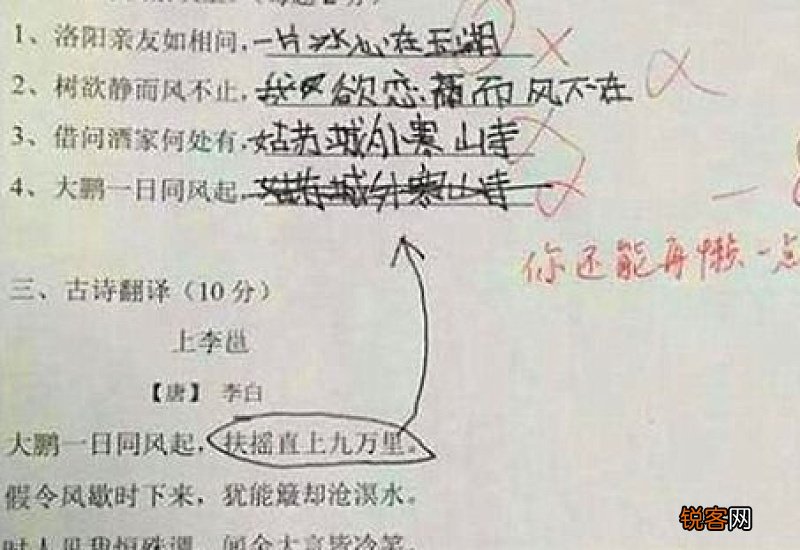 1、洛阳亲友如相问,一片冰心在玉湖
2、树欲静而风不止,我欲恋着而风不在
3、借问酒家何处有,姑苏城外寒山寺
4、大鹏一日同风起,姑苏城外寒山寺
你还能再懒一点
三、古诗翻译(10分)
上李邕
【唐】 李白
大鹏一日同风起,扶摇直上九万里。
假令风歇时下来,犹能簸却沧溟水。
时人见我恒殊调,闻余大言皆冷笑。
锐客网